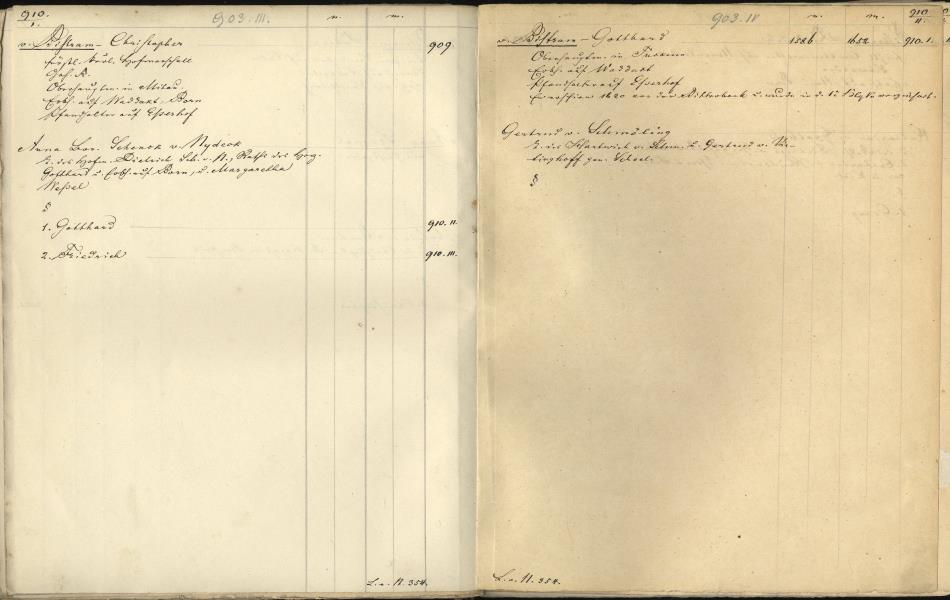 910.
I.
903. III.
n.
m.
v. Bistram - Christopher
909
fürstl. kurl. Hofmarschall
Geh. R.
Oberhauptm. in Mitau
Erbh. auf Waddax, Born
Pfandhalter auf Esserhof
Anna Schenck v. Nydeck
T. des Hofm. Dietrich Sch. v. N., Raths des Hzg.
Gotthard u. Erbh. auf Born, u. Margaretha
Wessel
§
1. Gotthard
910. II.
2. Friedrich
910. III.
L. a. N. 354.
903. IV
n.
m.
910
II.
v. Bistram - Gotthard
1586
1652
910. I.
Oberhauptm. in Tuckum
Erbh. auf Waddax
Pfandhalter auf Esserhof
erschien 1620 vor der Ritterbank u. wurde in d. II Klasse
Gertrud v. Schmöling
T. des v. Schm. u. Gertrud v. Vie-
tinghoff gen. Scheel.
§
L. a. N. 354.